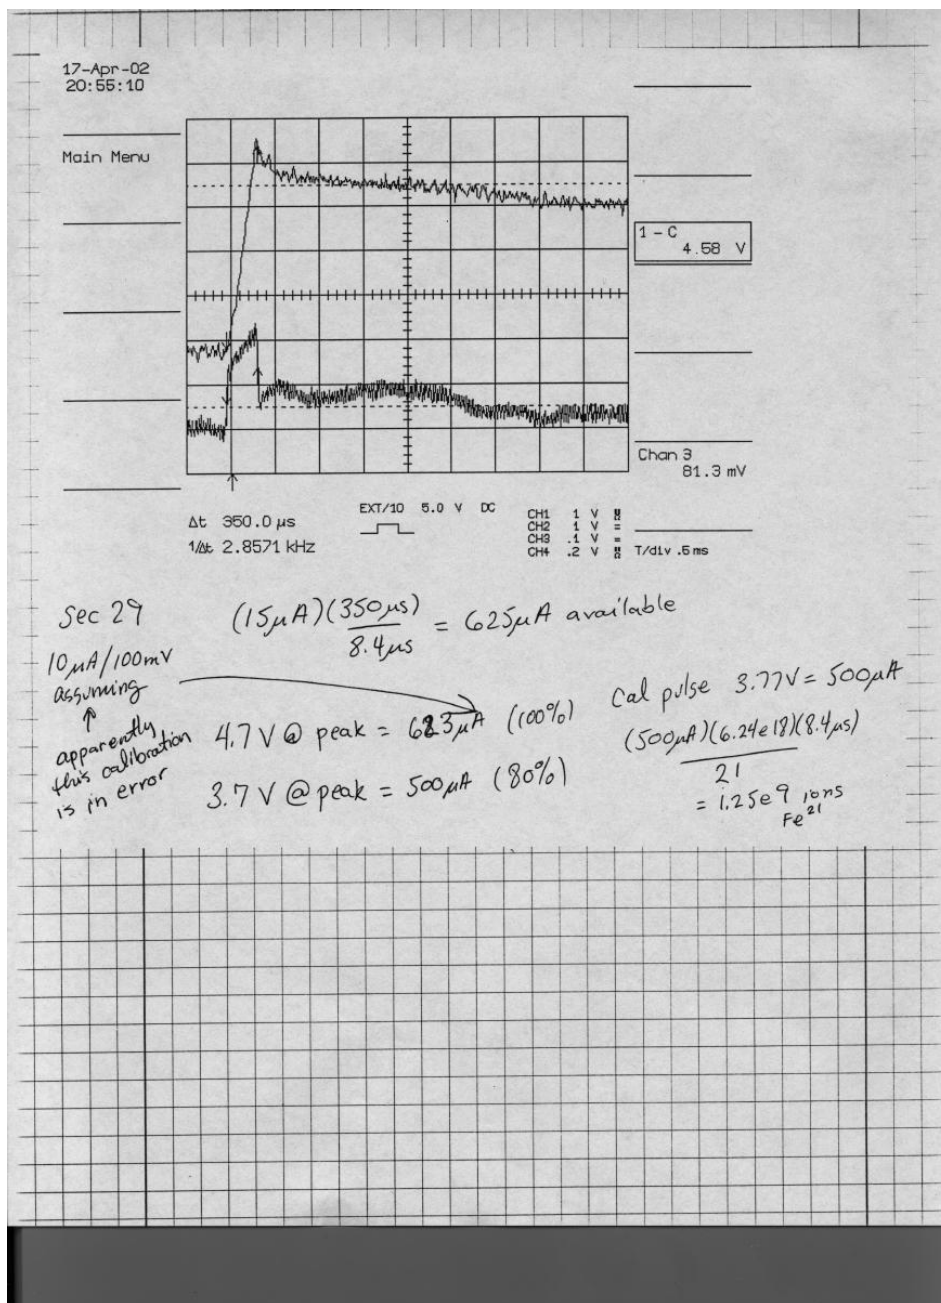 17-Apr-02
20:55:10
Main Menu
1-C
4.58 V
Chan 3
81.3 mV
Δt 350.0 µs
1/Δt 2.8571 kHz
EXT/10 5.0 V DC
CH1 1 V
CH2 1 V =
CH3 .1 V =
CH4 .2 V
T/div .5 ms
Sec 29
(15µA)(350µs)
8.4µs
= 625µA available
10µA/100mV
assuming
↑
apparently
this calibration
is in error
4.7 V @ peak = 623µA (100%)
3.7 V @ peak = 500µA (80%)
Cal pulse 3.77V = 500µA
(500µA)(6.24e18)(8.4µs)
21
= 1.25e9 ions
Fe²¹